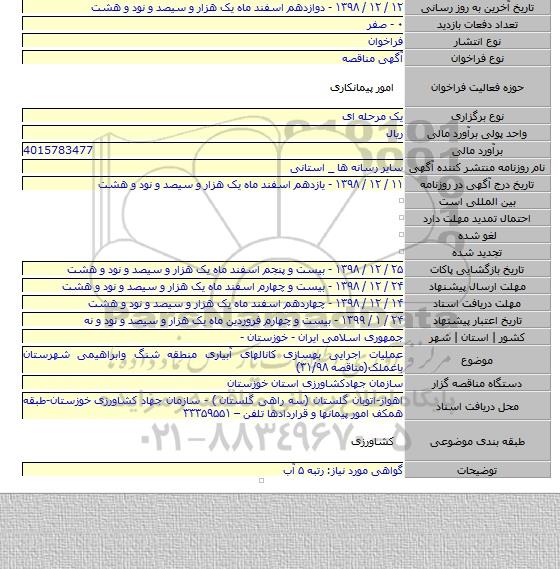 تاریخ آخرین به روز رسانی ۱۲ / ۱۲ / ۱۳۹۸ - دوازدهم اسفند ماه یک هزار و سیصد و نود و هشت
تعداد دفعات بازدید ۰ - صفر
نوع انتشار فراخوان
نوع فراخوان آگهی مناقصه
حوزه فعالیت فراخوان امور پیمانکاری
نوع برگزاری یک مرحله ای
واحد پولی برآورد مالی ریال
برآورد مالی 4015783477
نام روزنامه منتشر کننده آگهی سایر رسانه ها _ استانی
تاریخ درج آگهی در روزنامه ۱۱ / ۱۲ / ۱۳۹۸ - یازدهم اسفند ماه یک هزار و سیصد و نود و هشت
بین المللی است
احتمال تمدید مهلت دارد
لغو شده
تجدید شده
تاریخ بازگشایی پاکات ۲۵ / ۱۲ / ۱۳۹۸ - بیست و پنجم اسفند ماه یک هزار و سیصد و نود و هشت
مهلت ارسال پیشنهاد ۲۴ / ۱۲ / ۱۳۹۸ - بیست و چهارم اسفند ماه یک هزار و سیصد و نود و هشت
مهلت دریافت اسناد ۱۴ / ۱۲ / ۱۳۹۸ - چهاردهم اسفند ماه یک هزار و سیصد و نود و هشت
تاریخ اعتبار پیشنهاد ۲۴ / ۱ / ۱۳۹۹ - بیست و چهارم فروردین ماه یک هزار و سیصد و نود و نه
کشور | استان | شهر جمهوری اسلامی ایران - خوزستان -
موضوع عملیات اجرایی بهسازی کانالهای آبیاری منطقه شنگ وابراهیمی شهرستان
باغملک(مناقصه ۳۱/۹۸)
دستگاه مناقصه گزار سازمان جهادکشاورزی استان خوزستان
محل دریافت اسناد اهواز-اتوبان گلستان (سه راهی گلستان ) - سازمان جهاد کشاورزی خوزستان-طبقه
همکف امور پیمانها و قراردادها تلفن – ۳۳۳۵۹۵۵۱
طبقه بندی موضوعی کشاورزی
توضیحات گواهی مورد نیاز: رتبه ۵ آب
۰۲۱-۸۸۳۴۹۶۷۰-۵